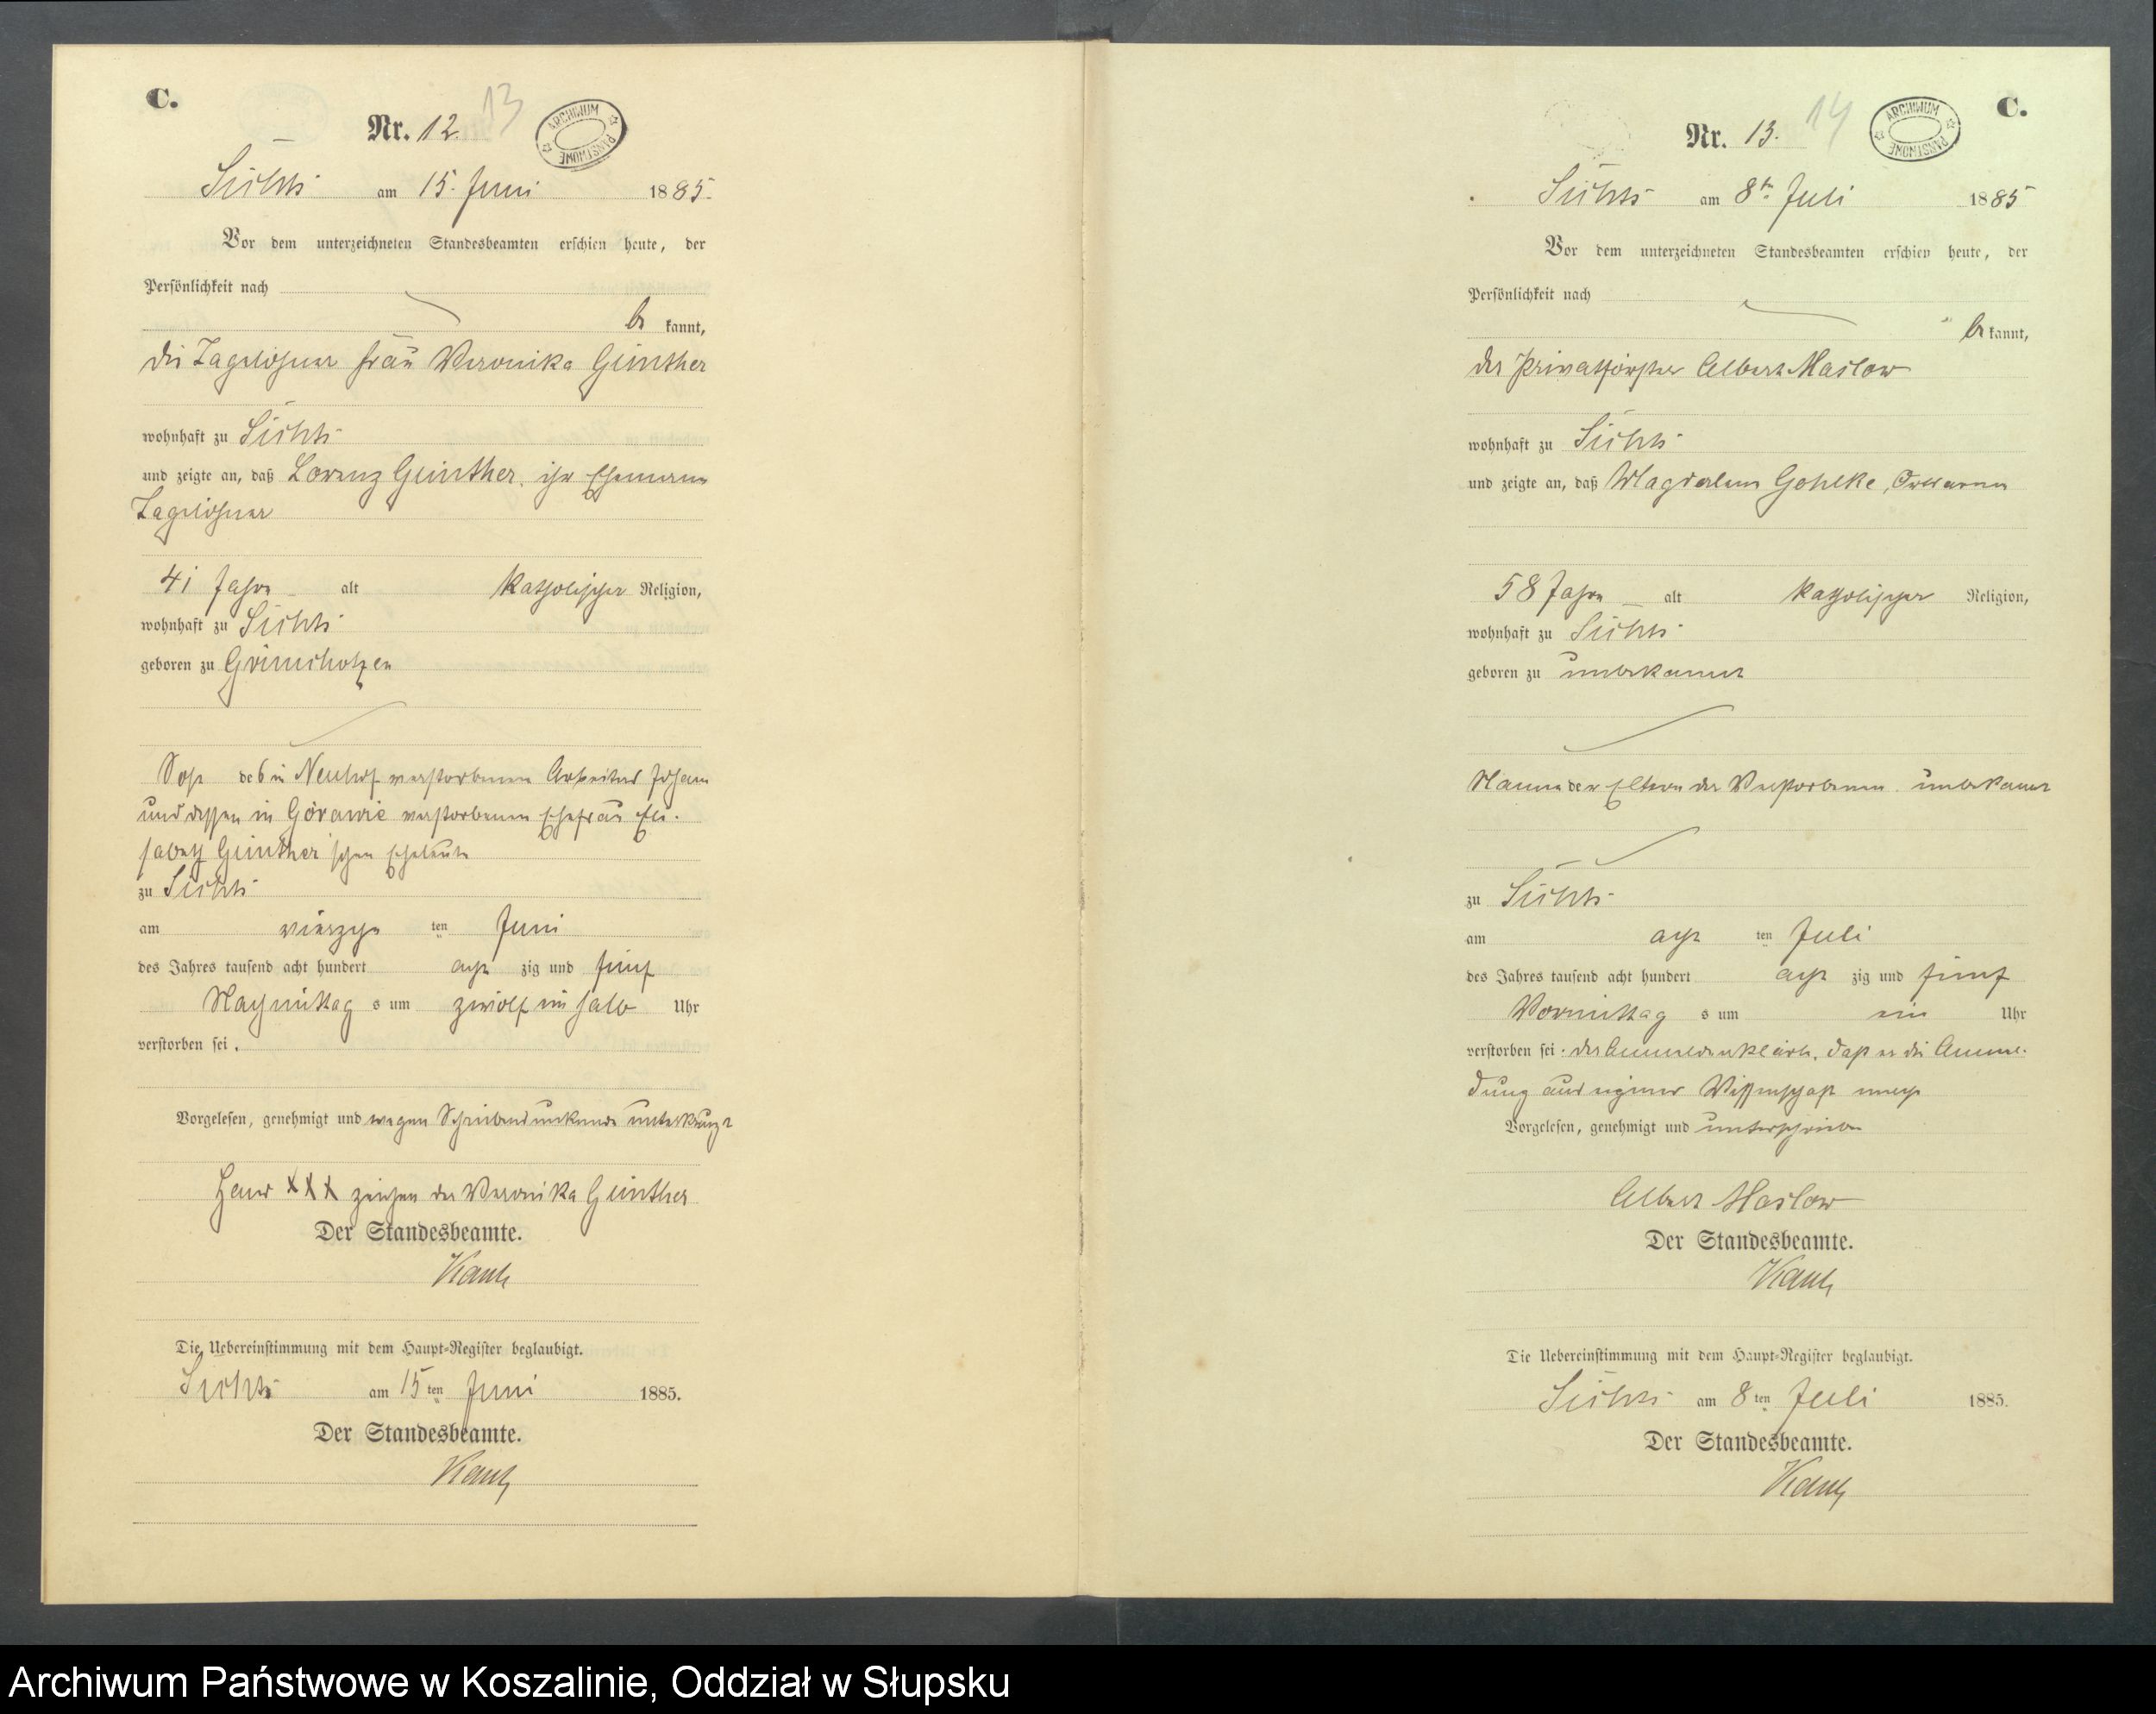 C.
Nr. 12. 13
ARCHIWUM PAŃSTWOWE
am 15. Juni 1885.
Vor dem unterzeichneten Standesbeamten erschien heute, der
Persönlichkeit nach
be kannt,
die Tagelöhner frau Veronika Günther
wohnhaft zu
und zeigte an, daß Lorenz Günther, ihr Ehemann
Tagelöhner
41 Jahre alt katholischer Religion,
wohnhaft zu
geboren zu
Sohn des in Neuhof verstorbenen Arbeiters Johann
und dessen in verstorbenen Ehefrau Eli-
sabeth Günther'schen Eheleute
zu
am vierzehn ten Juni
des Jahres tausend acht hundert acht zig und fünf
Nachmittag s um zwölf ein halb Uhr
verstorben sei.
Vorgelesen, genehmigt und wegen Schreibensunkunde unterkreuzt
Hand XXX zeichen der Veronika Günther
Der Standesbeamte.
Die Uebereinstimmung mit dem Haupt-Register beglaubigt.
am 15 ten Juni 1885.
Der Standesbeamte.
C.
Nr. 13. 14
ARCHIWUM PAŃSTWOWE
am 8ten Juli 1885
Vor dem unterzeichneten Standesbeamten erschien heute, der
Persönlichkeit nach
be kannt,
der Privatförster Albert Maslow
wohnhaft zu
und zeigte an, daß Magdalena Gohlke, Ortsarme
58 Jahre alt katholischer Religion,
wohnhaft zu
geboren zu unbekannt
Namen der Eltern der Verstorbenen unbekannt
zu
am acht ten Juli
des Jahres tausend acht hundert acht zig und fünf
Vormittag s um ein Uhr
verstorben sei. daß er die Anmel-
dung aus eigener Wissenschaft
Vorgelesen, genehmigt und unterschrieben
Albert Maslow
Der Standesbeamte.
Die Uebereinstimmung mit dem Haupt-Register beglaubigt.
am 8 ten Juli 1885.
Der Standesbeamte.
Archiwum Państwowe w Koszalinie, Oddział w Słupsku